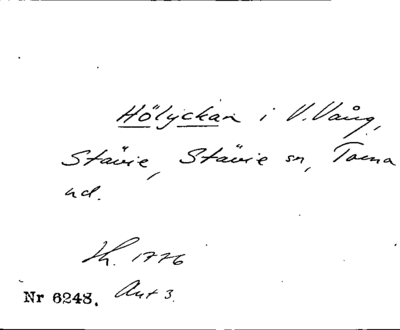 Hölyckan i V. Vång,
Stävie, Stävie sn, Torna
hd.
Lh. 1776
Nr 6248. Akt 3.